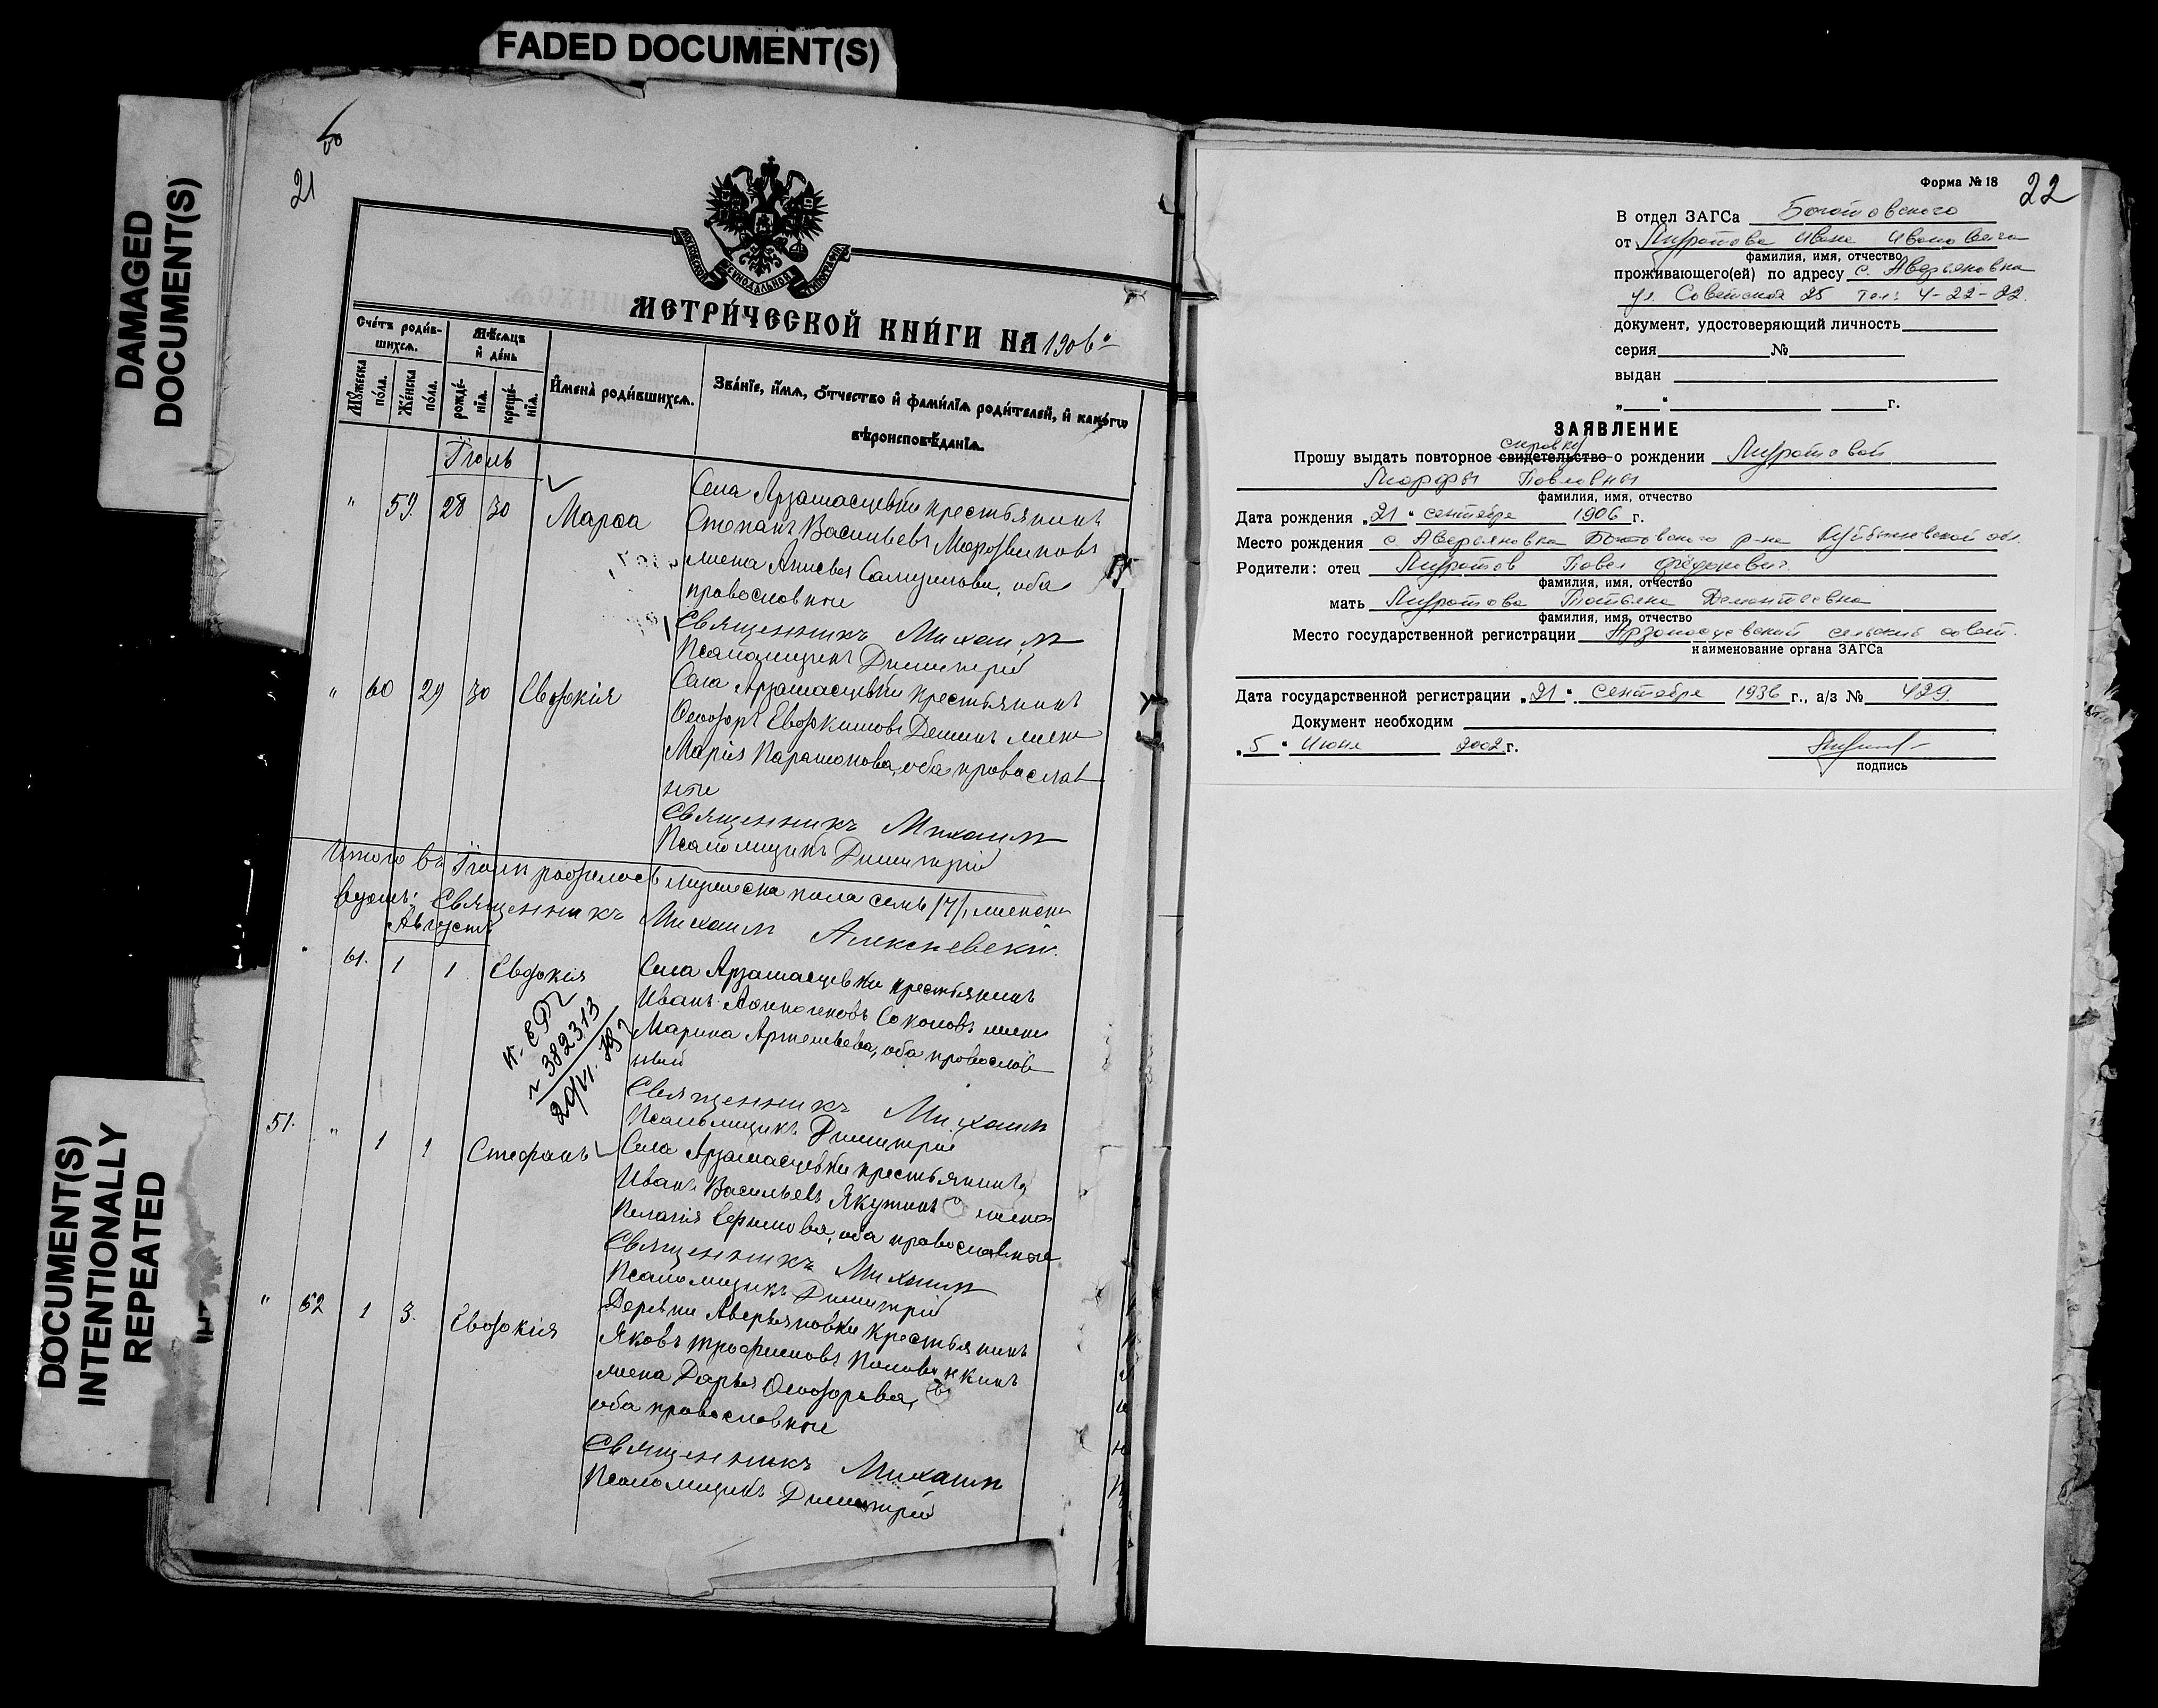 FADED DOCUMENT(S)
DAMAGED
DOCUMENT(S)
DOCUMENT(S)
INTENTIONALLY
REPEATED
21
МЕТРИ́ЧЕСКОЙ КНИ́ГИ НА 1906
Сче́тъ роди́в-
шихсѧ.
Мѣ́сѧцъ
и҆ де́нь
Мꙋ́жеска
по́ла.
Же́нска
по́ла.
рожде́-
нїѧ.
креще́-
нїѧ.
И҆мена̀ роди́вшихсѧ.
Зва́нїе, и҆́мѧ, ѻ҆́тчество и҆ фами́лїѧ роди́телей, и҆ како́гѡ
вѣроисповѣ́данїѧ.
Іюль
" 59. 28 30 Марѳа
Села Арзамасцевки крестьянинъ
Степанъ Васильевъ
жена оба
православные
Священникъ Михаил
Псаломщикъ Димитрій
" 60 29 30 Евдокія
Села Арзамасцевки крестьянинъ
Ѳеодоръ Евдокимовъ Деминъ жена
Марія Парамонова, оба православ
ные
Священникъ Михаил
Псаломщикъ Димитрій
Итого въ Іюлѣ родилось мужеска пола семь /7/, женска
Священникъ Михаил Алексѣевскій.
Августъ
" 61. 1 1 Евдокія
Села Арзамасцевки крестьянинъ
Иванъ Соколовъ жена
Марина Артемьева, оба православ
ный
Священникъ Михаил
Псаломщикъ Димитрій
382313
51. " 1 1 Стефанъ
Села Арзамасцевки крестьянинъ
Иванъ Васильевъ Якунинъ жена
Пелагія оба православные
Священникъ Михаил
Псаломщикъ Димитрій
" 62 1 3. Евдокія
Деревни Аверьяновки крестьянинъ
Яковъ Трофимовъ Половинкинъ
жена Дарья Ѳеодорова,
оба православные
Священникъ Михаил
Псаломщикъ Димитрій
Форма № 18
22
В отдел ЗАГСа Богатовского
от Ивана Ивановича
фамилия, имя, отчество
проживающего(ей) по адресу с. Аверьяновка
ул. Советская 25 тел: 4-22-22.
документ, удостоверяющий личность
серия №
выдан
„ “ г.
ЗАЯВЛЕНИЕ
справку
Прошу выдать повторное свидетельство о рождении
Марфы Павловны
фамилия, имя, отчество
Дата рождения „21“ сентября 1906 г.
Место рождения с. Аверьяновка Богатовского р-на Куйбышевской обл.
Родители: отец Павел Фёдорович.
фамилия, имя, отчество
мать Татьяна Дементьевна
фамилия, имя, отчество
Место государственной регистрации Арзамасцевский сельский совет.
наименование органа ЗАГСа
Дата государственной регистрации „21“ сентября 1936 г., а/з № 429.
Документ необходим
„5“ Июня 2002 г.
подпись